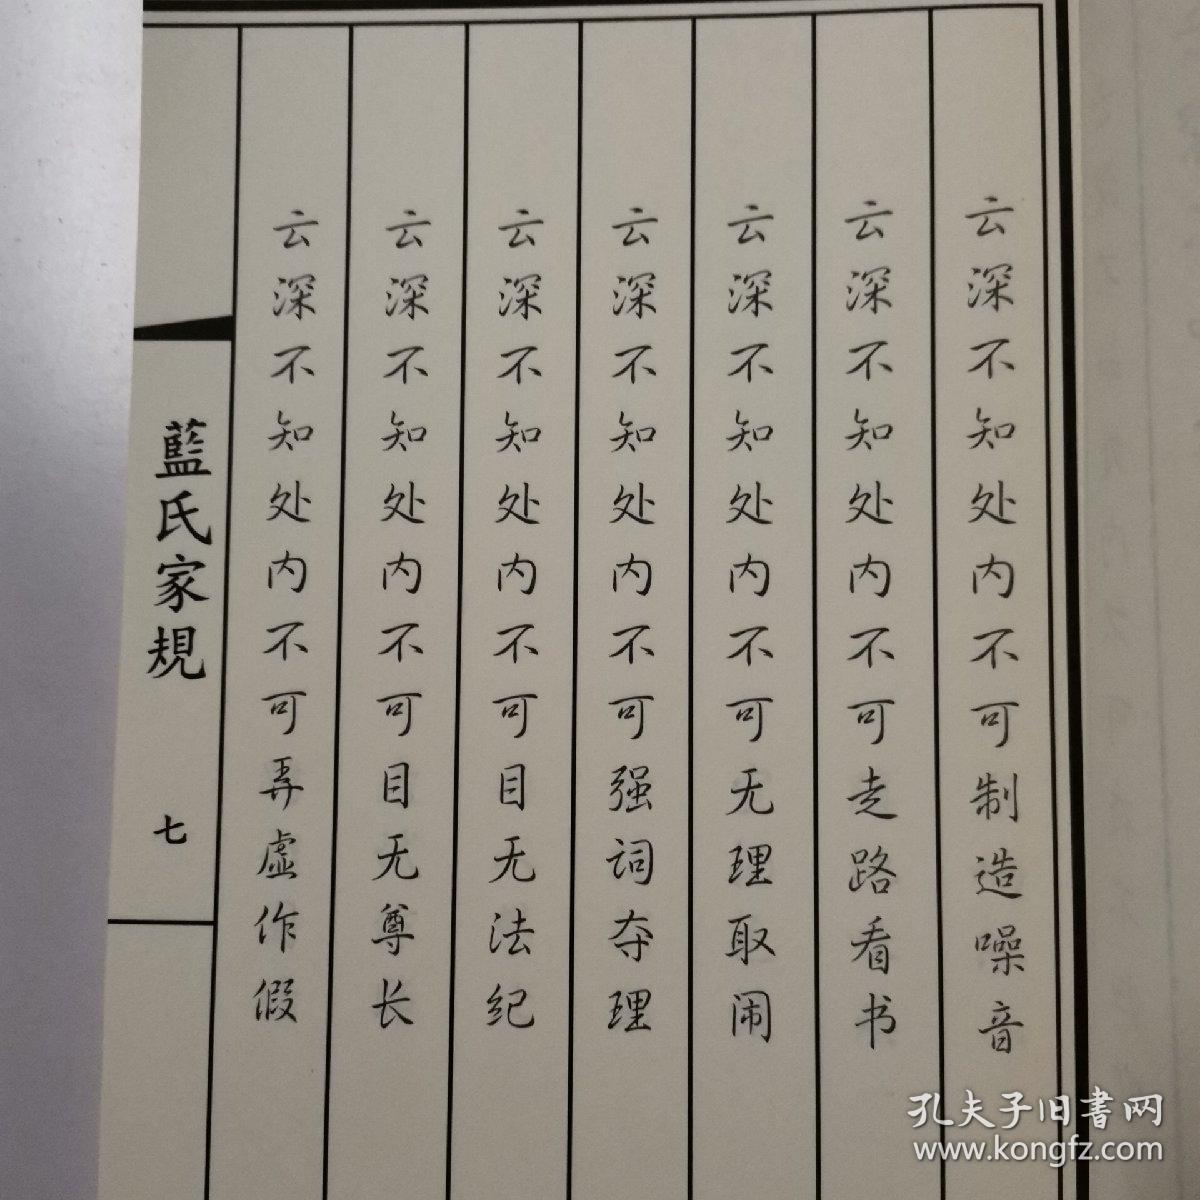 云深不知处内不可制造噪音
云深不知处内不可走路看书
云深不知处内不可无理取闹
云深不知处内不可强词夺理
云深不知处内不可目无法纪
云深不知处内不可目无尊长
云深不知处内不可弄虚作假
藍氏家規
七
孔夫子旧書网
www.kongfz.com